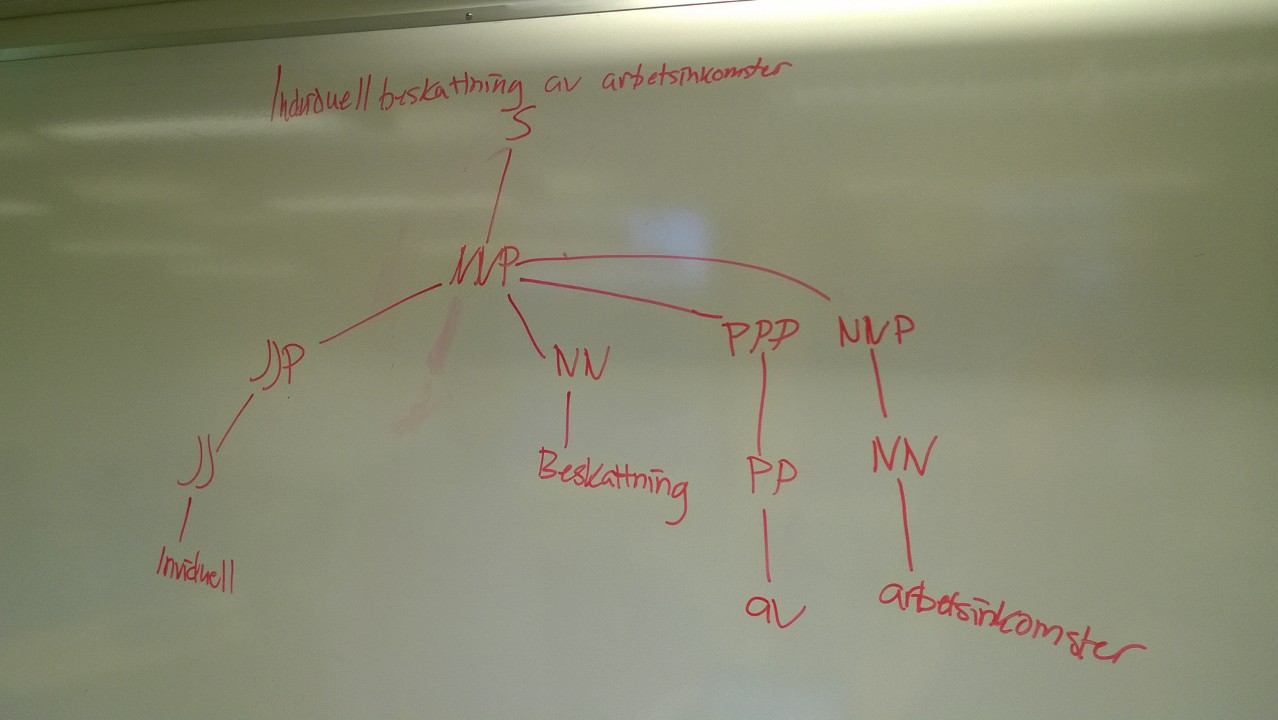 Individuell beskattning av arbetsinkomster
S
NNP
JJP NN PPP NNP
JJ Beskattning PP NN
Inviduell av arbetsinkomster